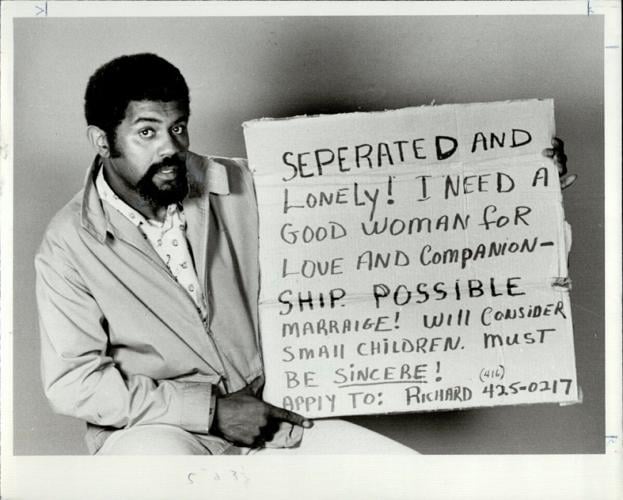 SEPERATED AND
LONELY! I NEED A
GOOD WOMAN FOR
LOVE AND COMPANION-
SHIP. POSSIBLE
MARRAIGE! WILL CONSIDER
SMALL CHILDREN. MUST
BE SINCERE!
APPLY TO: RICHARD (416) 425-0217